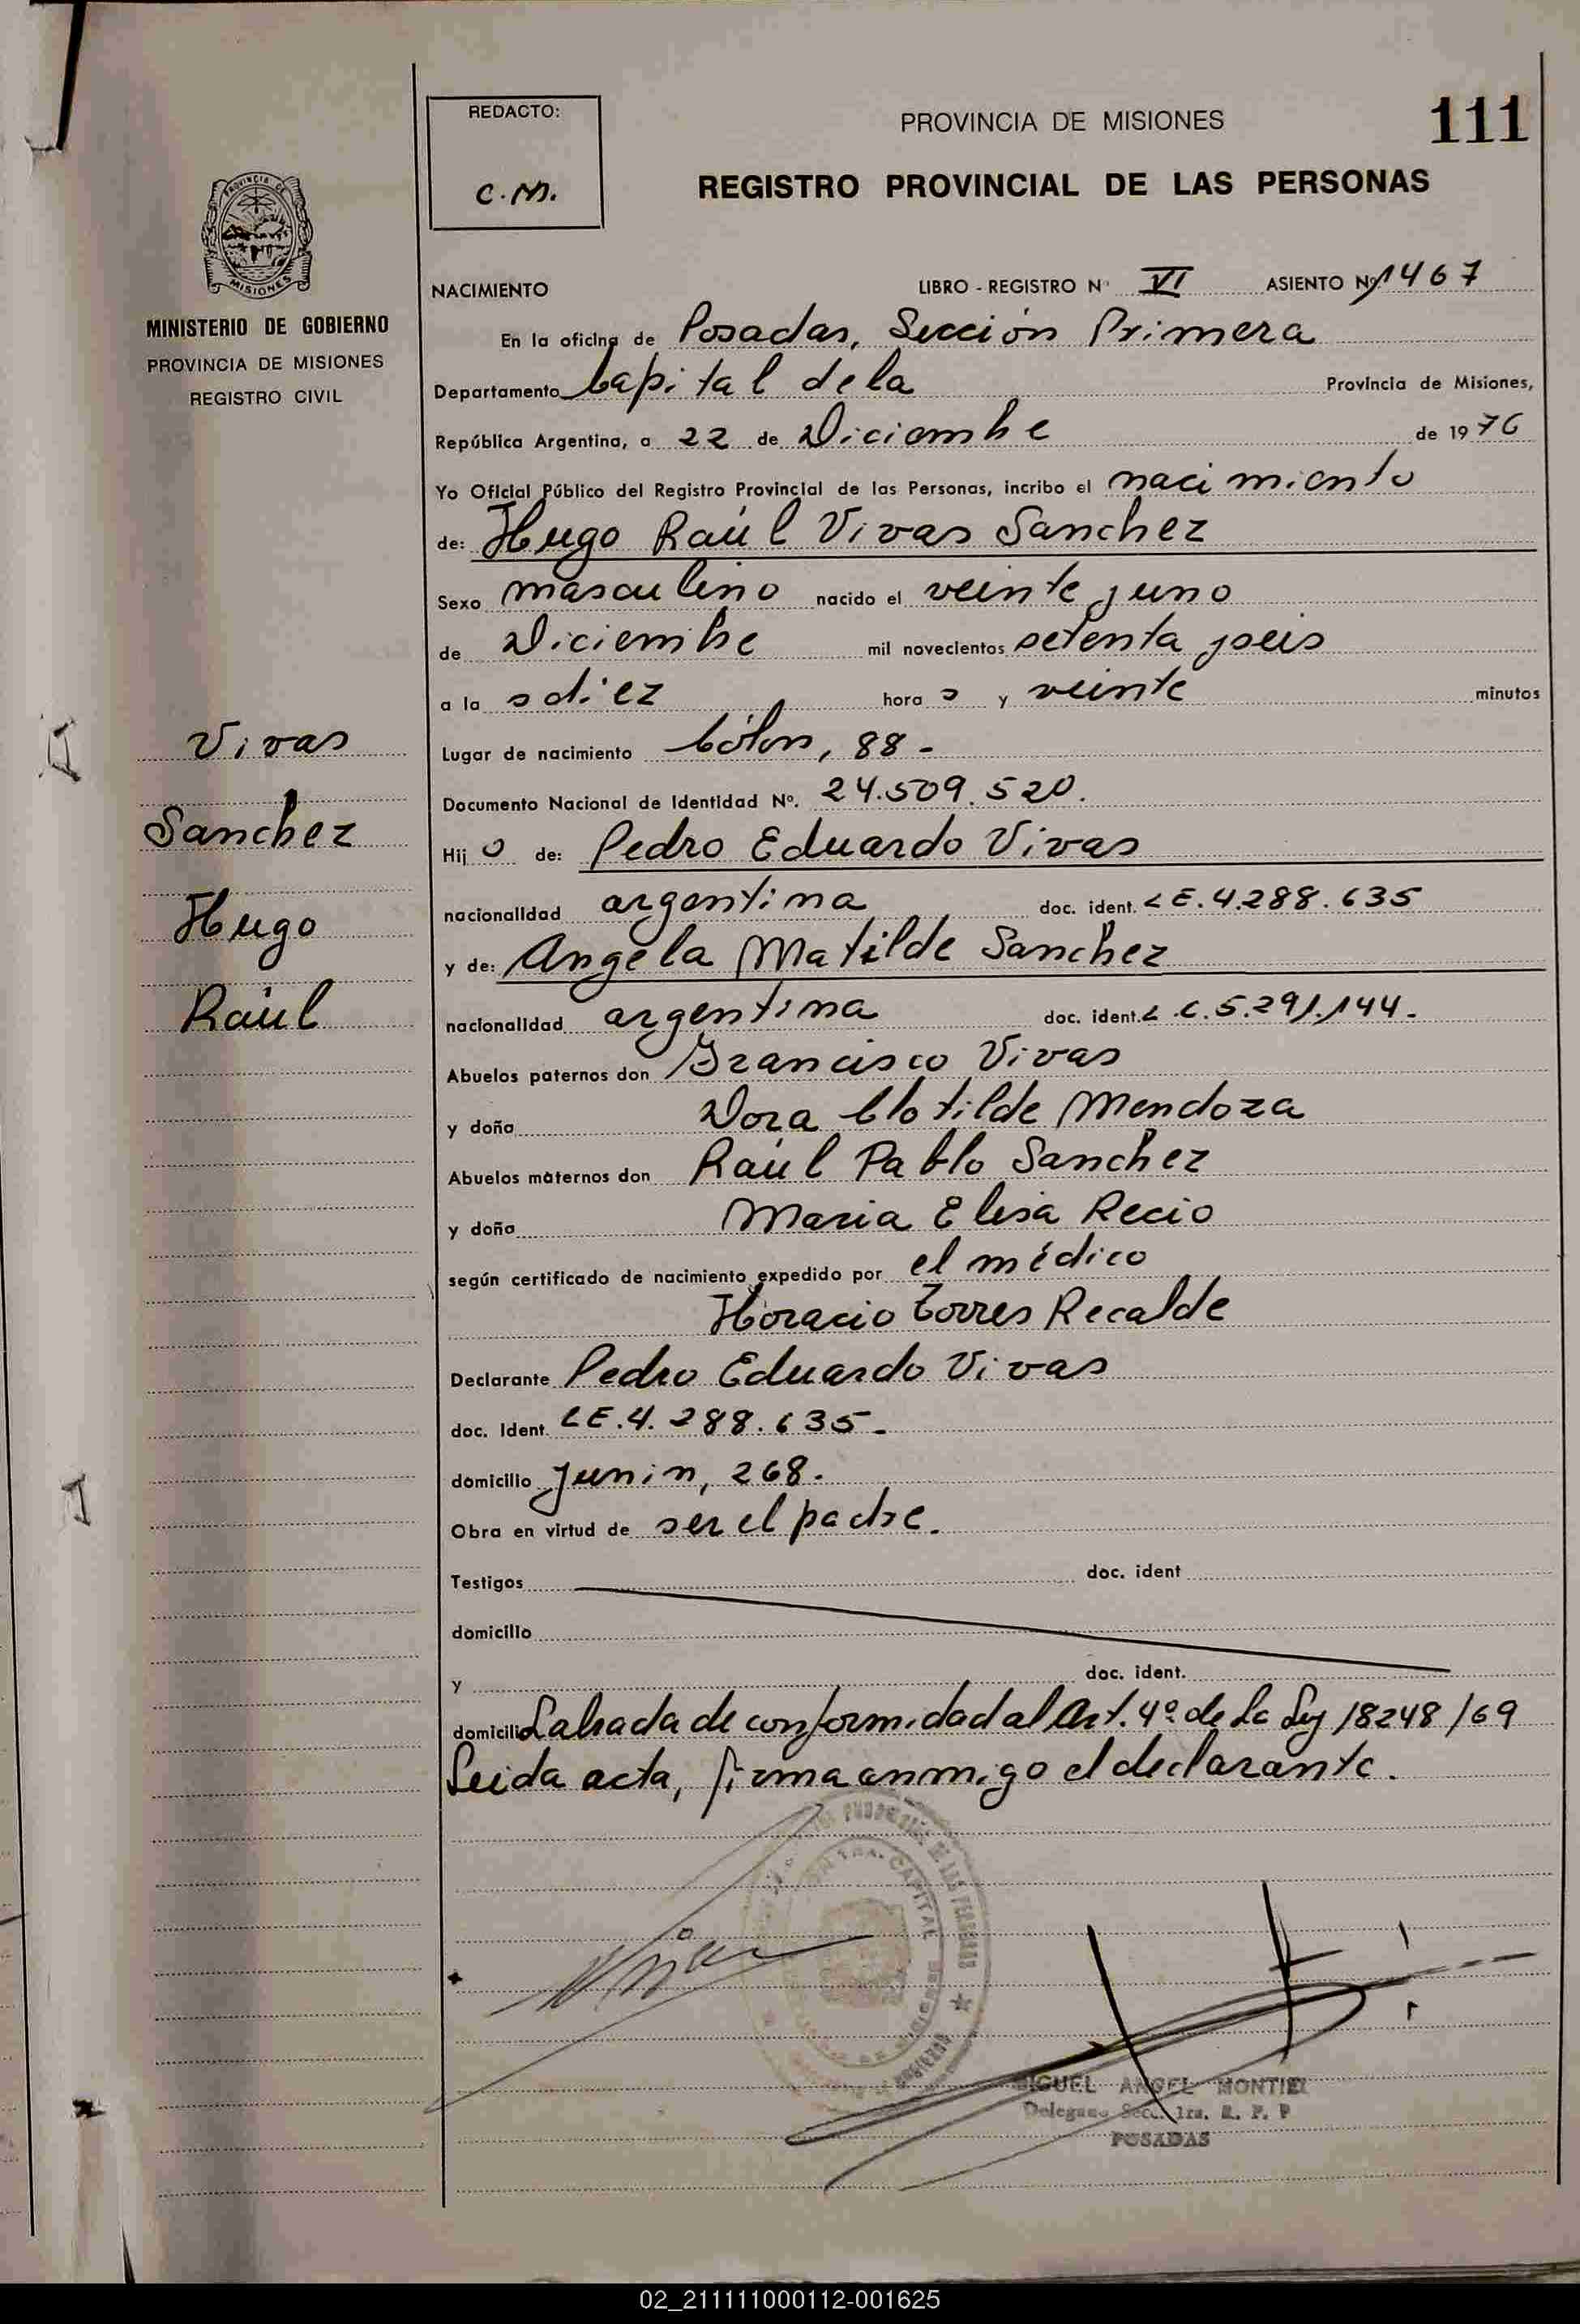 REDACTO:
C.M.
PROVINCIA DE MISIONES
111
REGISTRO PROVINCIAL DE LAS PERSONAS
PROVINCIA DE
MISIONES
MINISTERIO DE GOBIERNO
PROVINCIA DE MISIONES
REGISTRO CIVIL
NACIMIENTO LIBRO - REGISTRO Nº VI ASIENTO Nº 1467
En la oficina de Posadas, Sección Primera
Departamento Capital de la Provincia de Misiones,
República Argentina, a 22 de Diciembre de 1976
Yo Oficial Público del Registro Provincial de las Personas, incribo el nacimiento
de: Hugo Raúl Vivas Sanchez
Sexo masculino nacido el veinte y uno
de Diciembre mil novecientos setenta y seis
a la s diez hora s y veinte minutos
Lugar de nacimiento Cólon, 88-
Documento Nacional de Identidad Nº. 24.509.520.
Hij o de: Pedro Eduardo Vivas
nacionalidad argentina doc. ident. LE.4.288.635
y de: Angela Matilde Sanchez
nacionalidad argentina doc. ident. L.C.5.291.144.
Abuelos paternos don Francisco Vivas
y doña Dora Clotilde Mendoza
Abuelos maternos don Raúl Pablo Sanchez
y doña Maria Elisa Recio
según certificado de nacimiento expedido por el médico
Horacio Torres Recalde
Declarante Pedro Eduardo Vivas
doc. Ident. LE.4.288.635-
domicilio Junin, 268.
Obra en virtud de ser el padre.
Testigos doc. ident
domicilio
y doc. ident.
domicilio Labrada de conformidad al Art. 4º de La Ley 18248/69
Leida acta, firma conmigo el declarante.
Vivas
Sanchez
Hugo
Raúl
CAPITAL
DE LAS PERSONAS
MIGUEL ANGEL MONTIEL
Delegado Secc. 1ra. R. P. P
POSADAS
02_211111000112-001625